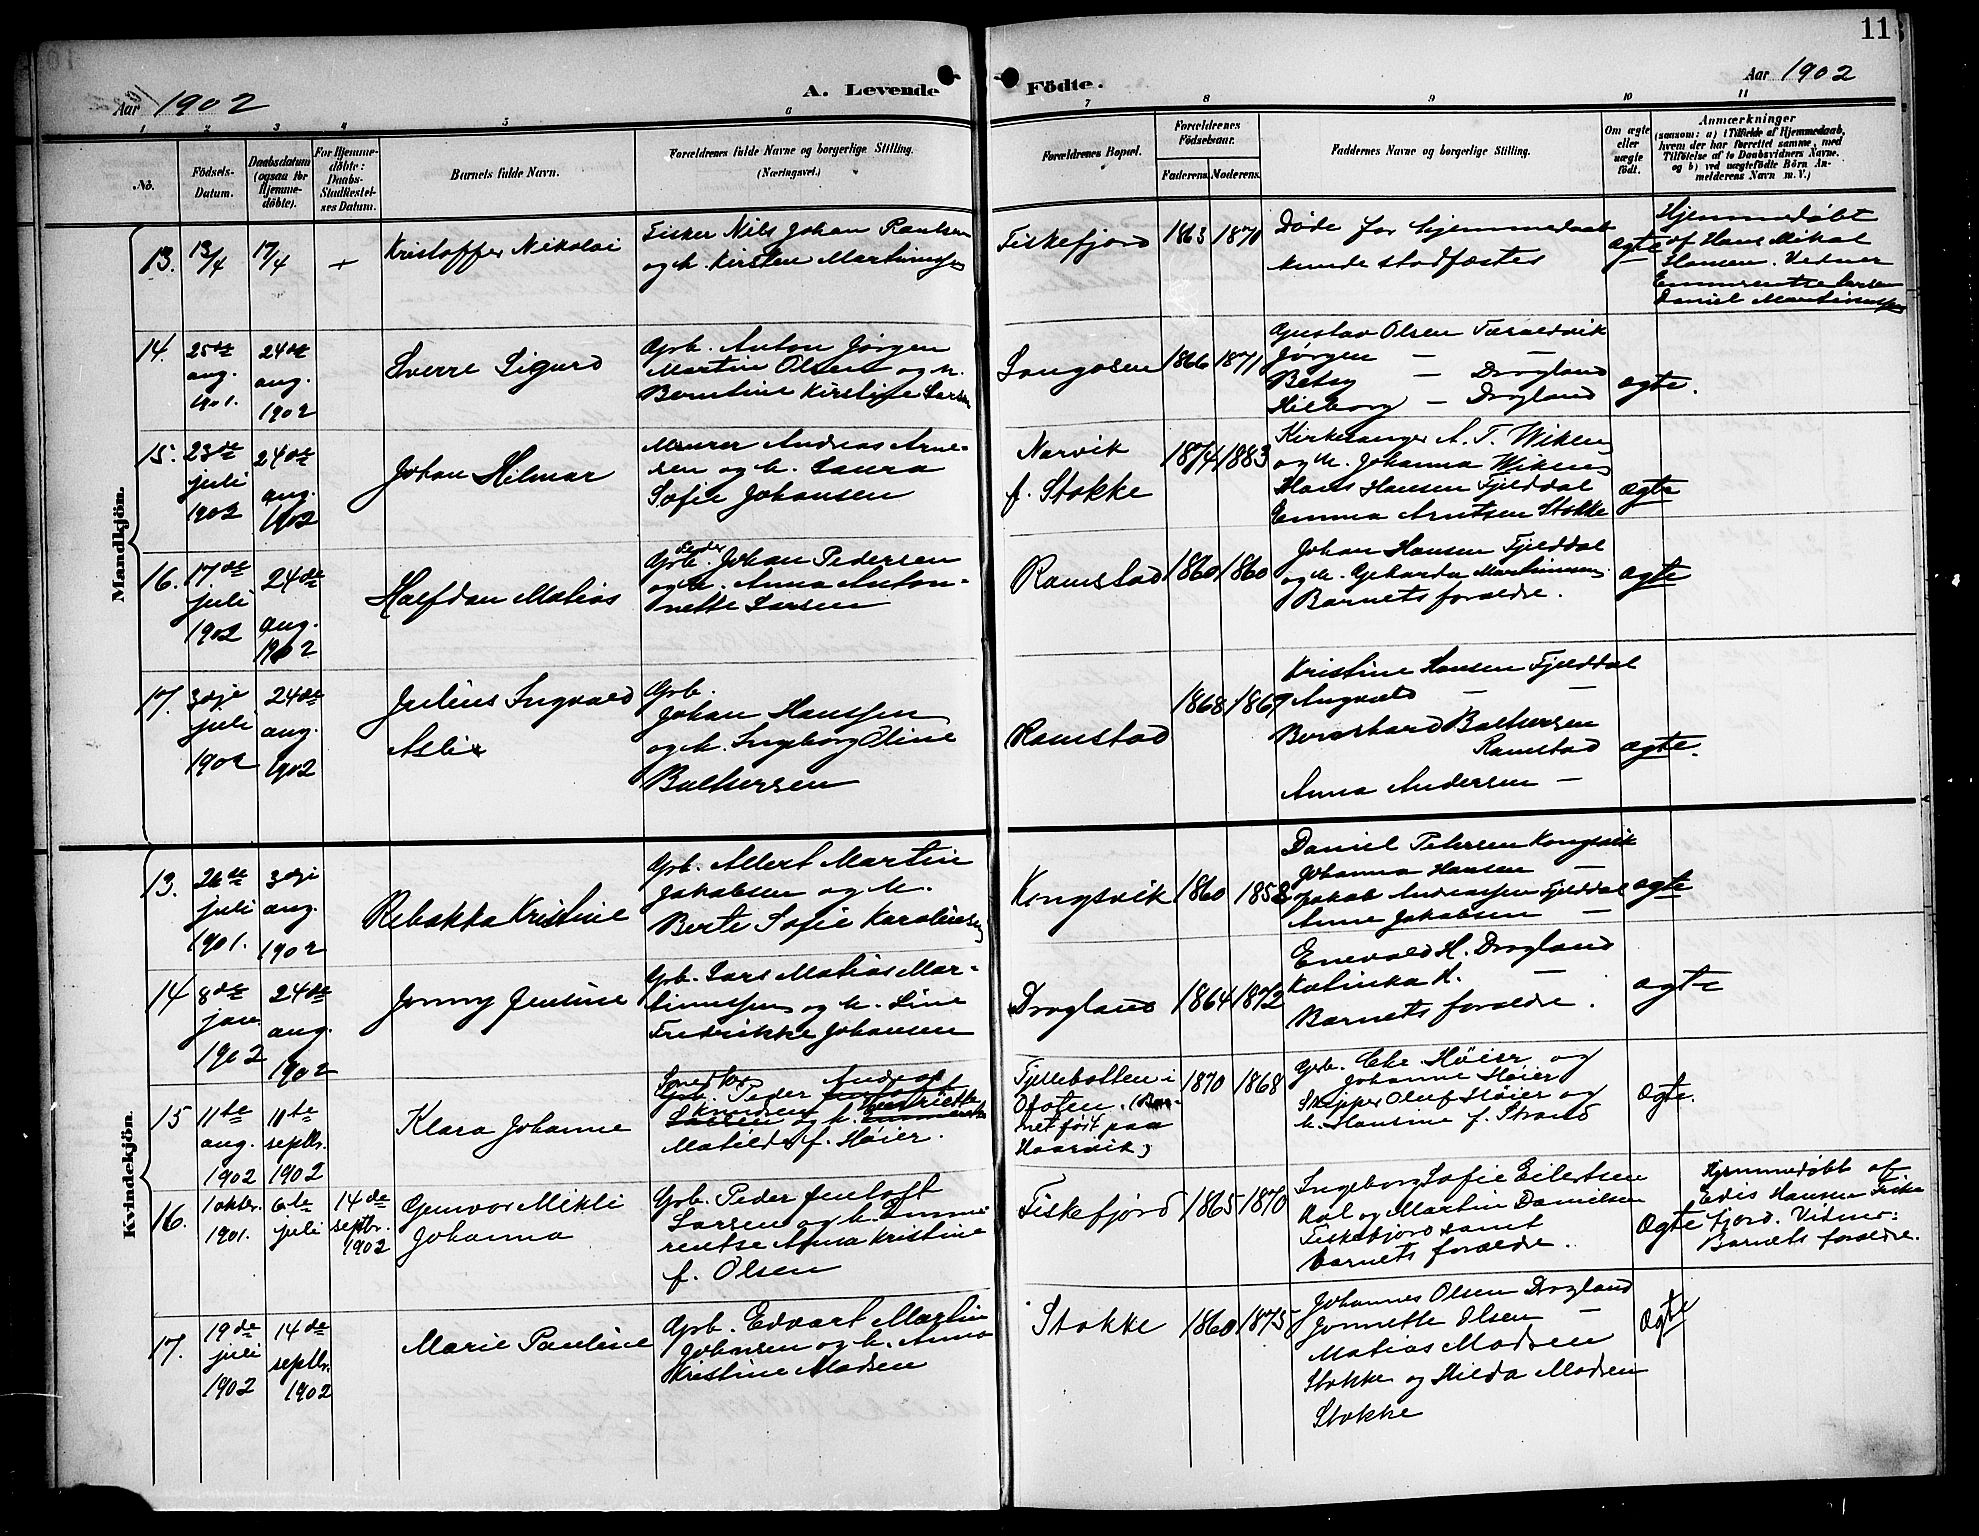 11
Aar 1902
A. Levende
Födte.
Aar 1902
1 2 3 4 5 6 7 8 9 10 11
No.
Födsels-
Datum.
Daabsdatum
(ogsaa for
Hjemme-
döbte).
For Hjemme-
döbte:
Daabs-
Stadfæstel-
ses Datum.
Barnets fulde Navn.
Forældrenes fulde Navne og borgerlige Stilling.
(Næringsvei.)
Forældrenes Bopæl.
Forældrenes
Födselsaar.
Faderens.
Moderens.
Faddernes Navne og borgerlige Stilling.
Om ægte
eller
uægte
født.
Anmærkninger
(saasom: a) i Tilfælde af Hjemmedaab,
hvem der har forrettet samme, med
Tilföielse af to Daabsvidners Navne,
og b) ved uægtefödte Börn An-
melderens Navn m. V.)
Mandkjön.
13.
13/4
17/4
+
Kristoffer Nikolai
Fisker Nils Johan Paulsen
og h. Kirsten Martinussen
Fiskefjord
1863
1870
Døde før hjemmedaab
kunde stadfæstes
ægte
Hjemmedøbt
af Hans Mikal
Hansen. Vidner
Daniel Martinussen
14.
25de
aug.
1901.
24de
aug.
1902
Sverre Sigurd
Gpb. Anton Jørgen
Martin Olsen og h.
Berntine Kirstine Larsen
Sangosen
1866
1871
Gustav Olsen Taraldvik
Jørgen — —
Betsy — Drogland
Hilborg — Drogland
ægte.
15.
23de
juli
1902
24de
aug.
1902
Johan Hilmar
Murer Andreas Arne-
sen og h. Laura
Sofie Johansen
Narvik
f. Stokke
1874
1883
Kirkesanger A. T. Wiken
og h. Johanna Wiken
Hans Hansen Fjelddal
Emma Arntsen Stokke
ægte
16.
17de
juli
1902
24de
aug.
1902
Halfdan Matias
Gpb. Peder Johan Pedersen
og h. Anna Anton-
nette Larsen
Ramstad
1860
1860
Johan Hansen Fjelddal
og h. Geharda Martinussen
Barnets forældre.
ægte
17.
3dje
juli
1902
24de
aug.
1902
Julius Ingvald
Gpb.
Johan Hanssen
og h. Ingeborg Oline
Balthersen
Ramstad
1868
1869
Kristine Hansen Fjelddal
Angvald — —
Bernhard Balthersen
Ramstad
Anna Andersen —
ægte.
Kvindekjön.
13.
26de
juli
1901.
3dje
aug.
1902
Rebekka Kristine
Gpb. Albert Martin
Jakobsen og h.
Berte Sofie Karoliussen
Kongsvik
1860
1858
Daniel Petersen Kongsvik
Johanna Hansen —
Jakob Andreassen Fjelddal
Anne Jakobsen —
ægte
14
8de
jan
1902
24de
aug.
1902
Jenny Jentine
Gpb. Lars Matias Mar-
tinussen og h. Line
Fredrikke Johansen
Drogland
1864
1872
Enevald H. Drogland
Katinka H. —
Barnets forældre.
ægte
15
11te
aug.
1902
10te
septbr.
1902
Klara Johanne
Snedker
Gpb. Peder Andreas
Knudsen og h. Henriette
Matilde f. Høier.
Fjellbotten i
Ofoten. (Bar-
net født paa
Haarvik)
1870
1868
Gpb. Eke Høier og
Johanne Høier
Skipper Oluf Høier og
h. Hansine f. Strand
ægte.
16.
1 oktbr.
1901.
6te
juli
14de
septbr.
1902
Gunvor Mikli
Johanna
Gpb. Peder Jentoft
Larsen og h. Emme-
rentse Anna Kristine
f. Olsen
Fiskefjord
1865
1870
Ingeborg Sofie Eilertsen
Aal og Martin Danielsen
Fiskefjord samt
barnets forældre.
ægte
Hjemmedøbt af
Edis Hansen Fiske
fjord. Vidner:
Barnets forældre.
17.
19de
juli
1902
14de
septbr.
1902
Marie Pauline
Gpb. Edvart Martin
Johnsen og h. Anna
Kristine Madsen
Stokke
1860
1875
Johannes Olsen Drogland
Jonnette Olsen —
Matias Madsen
Stokke og Hilda Madsen
Stokke
ægte